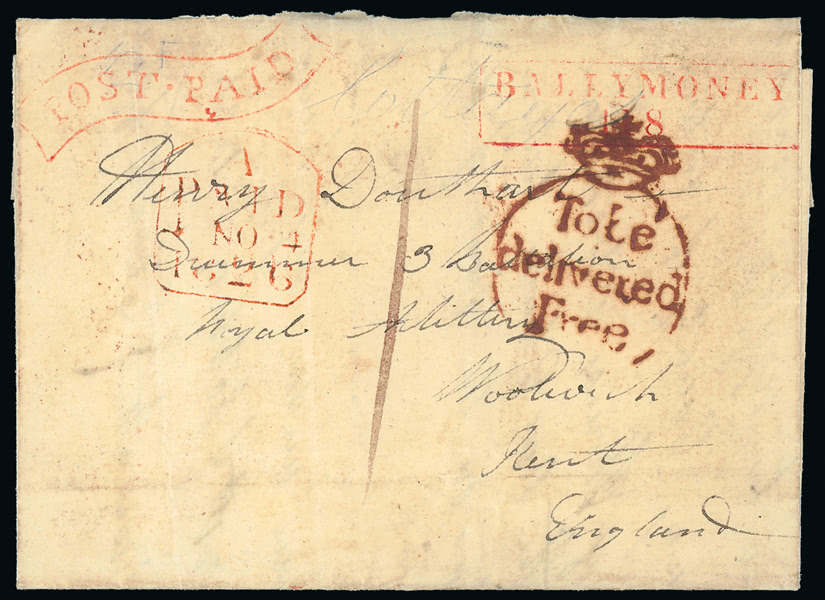 POST·PAID
BALLYMONEY
118
Henry Douthart
Drummer 3 Battalion
Royal Artillery
Woolwich
Kent
England
1
PAID
NO 4
1826
To be
delivered
Free